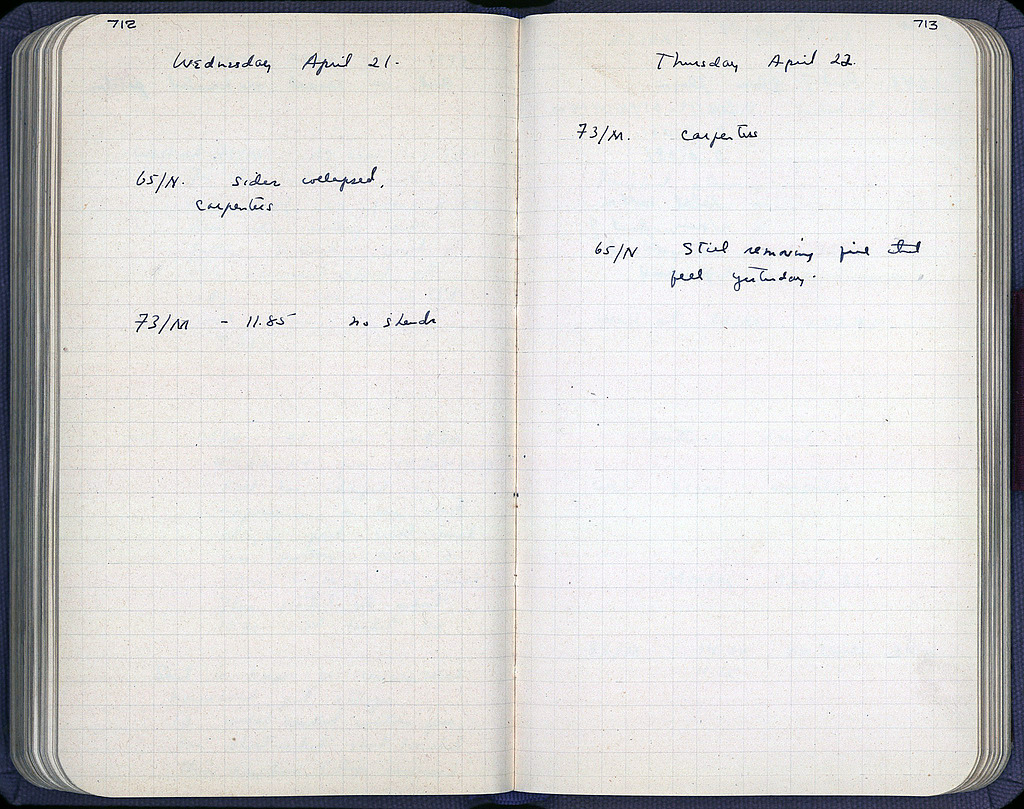 712
Wednesday April 21.
65/N. sides collapsed,
carpenters
73/M - 11.85 no sherds
713
Thursday April 22.
73/M. carpenters
65/N Still removing
fell yesterday.